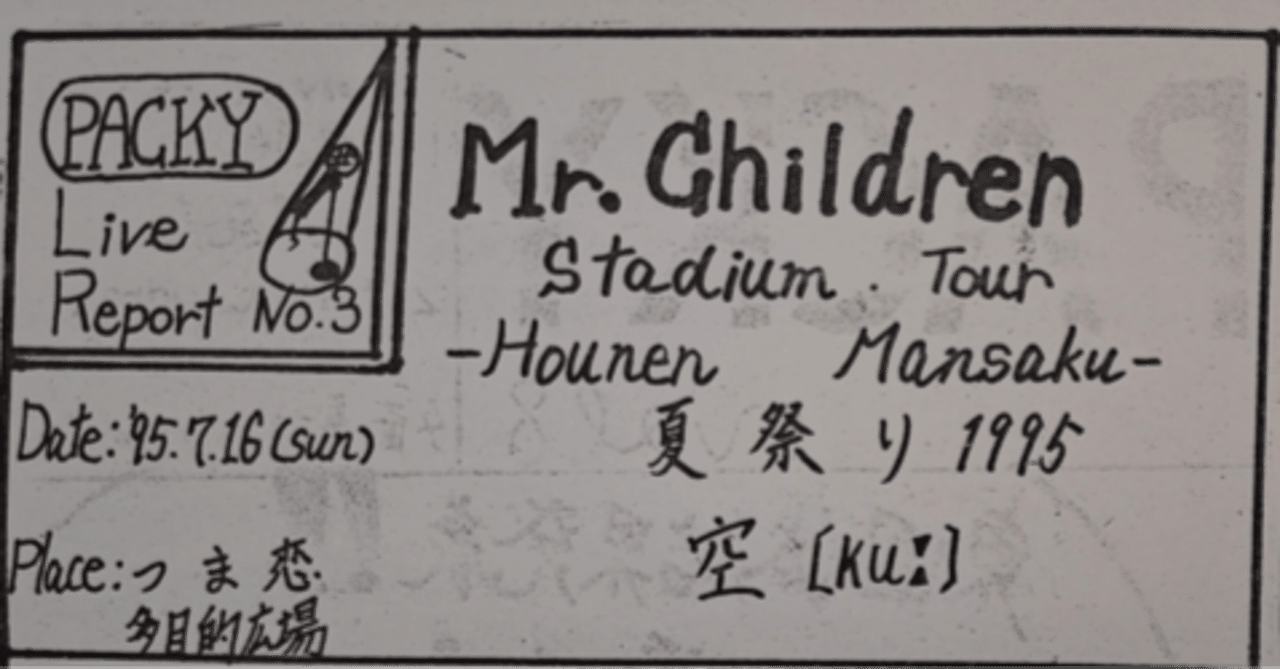 PACKY
Live
Report No.3
Mr. Children
Stadium. Tour
-Hounen Mansaku-
夏祭り 1995
空 [ku:]
Date: '95.7.16 (sun)
Place: つま恋
多目的広場